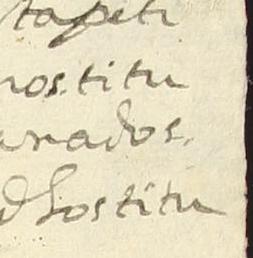 tapeti
nostitu
arados.
dhostitu